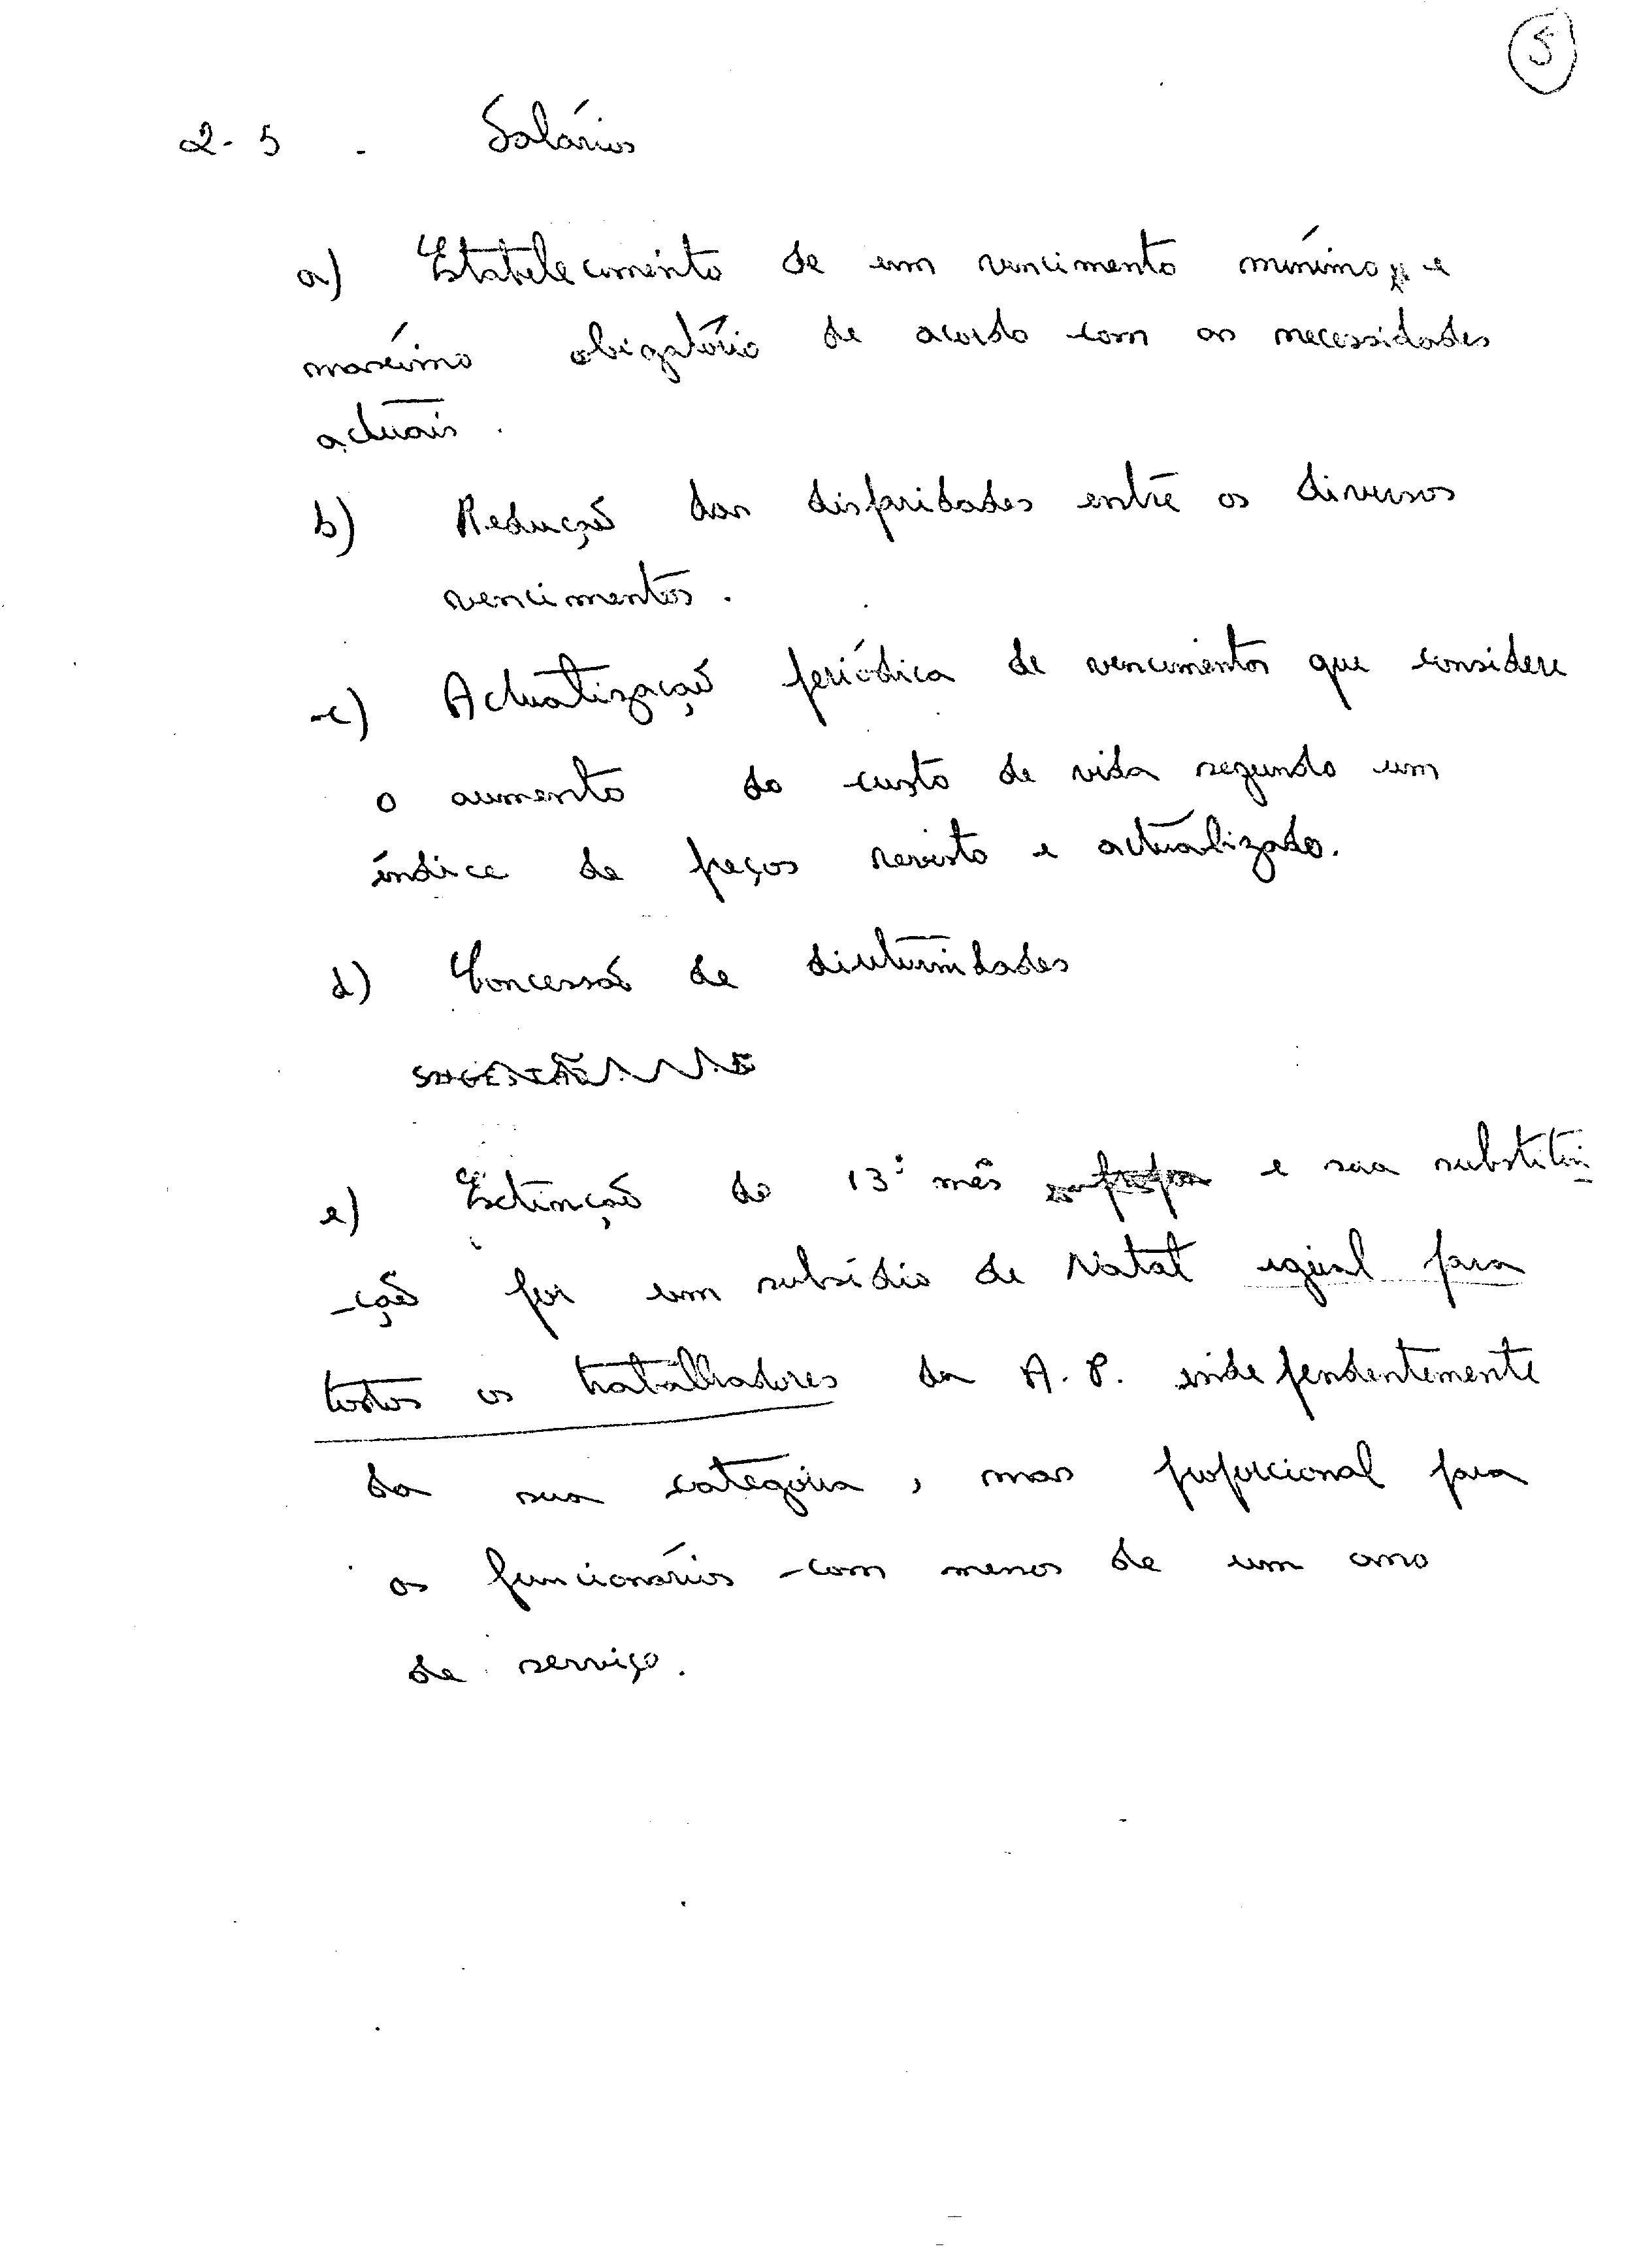 5
2-5 - Salários
a) Estabelecimento de um vencimento mínimo e
máximo obrigatório de acordo com as necessidades
actuais.
b) Redução das disparidades entre os diversos
vencimentos.
c) Actualização periódica de vencimentos que considere
o aumento do custo de vida segundo um
índice de preços revisto e actualizado.
d) Concessão de diuturnidades
e) Extinção do 13º mês e sua substitui
-ção por um subsídio de Natal igual para
todos os trabalhadores da A.P. independentemente
da sua categoria, mas proporcional para
os funcionários com menos de um ano
de serviço.